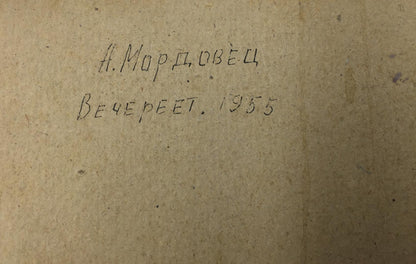 А. Мордовец
Вечереет. 1955